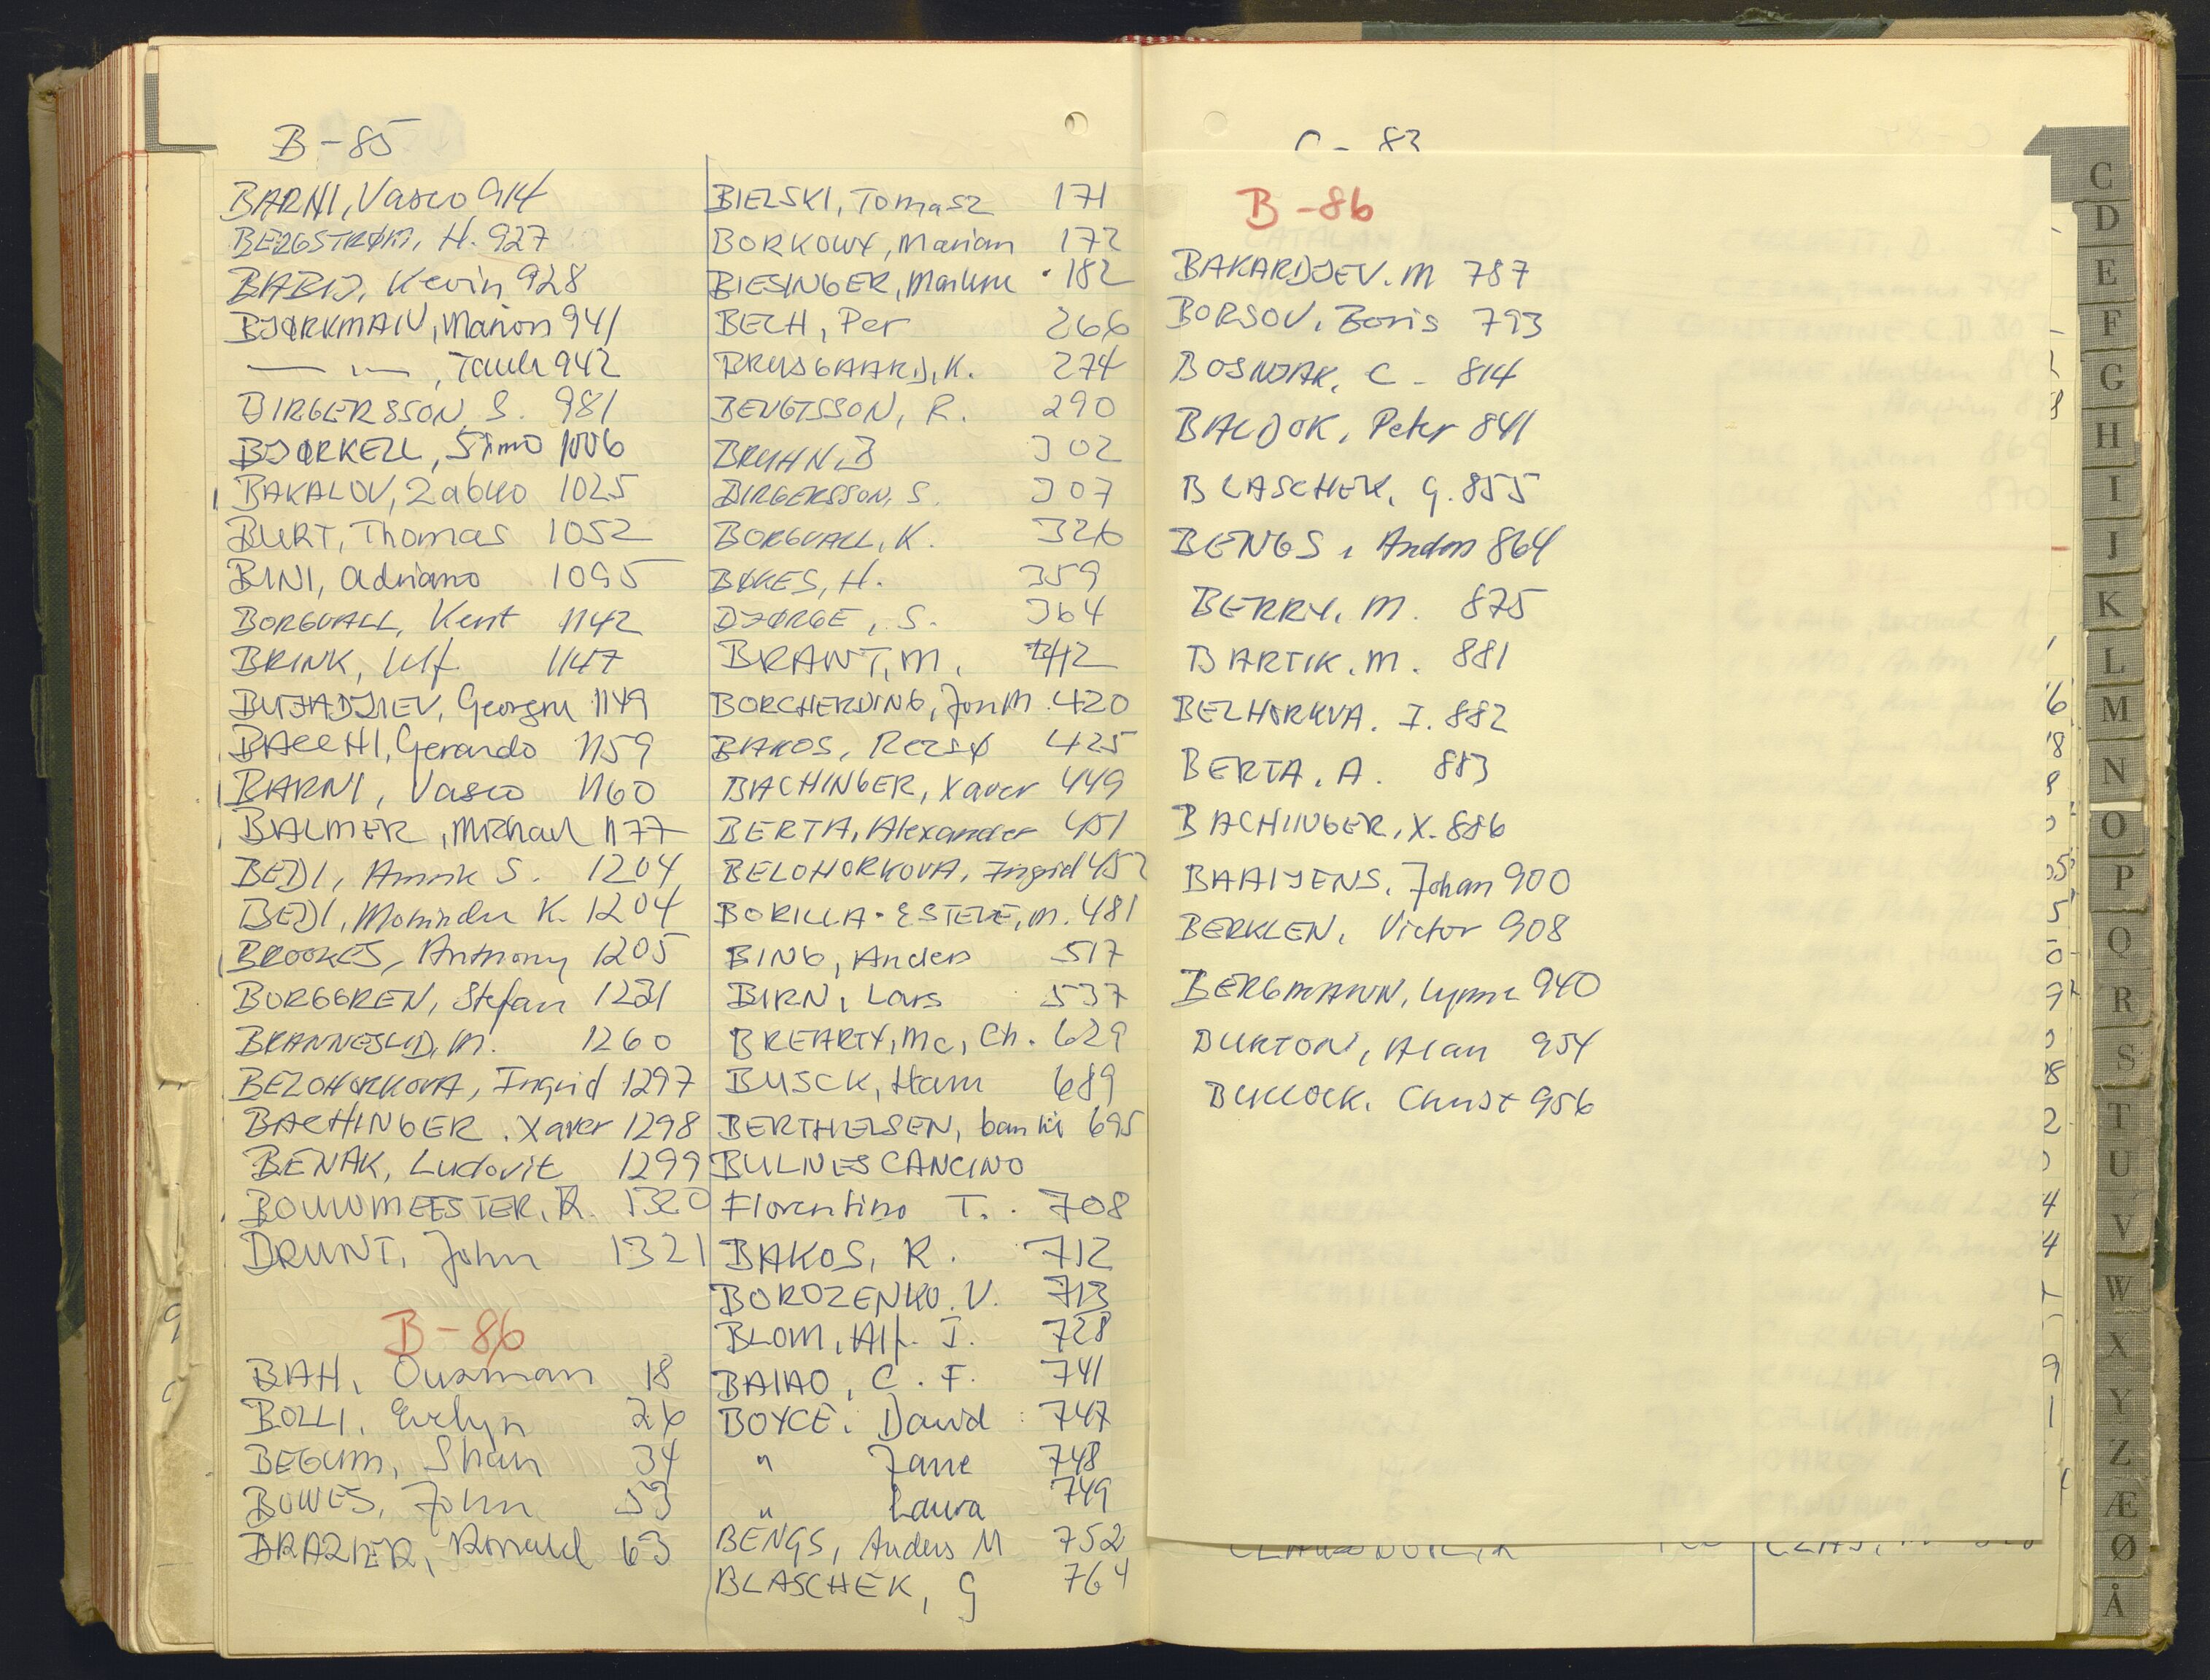 B-85
BARNI, Vasco 914
BERGSTRØM, H. 927
BABIJ, Kevin 928
BJØRKMAN, Marion 941
— " — , 942
BIRGERSSON, S. 981
BJØRKELL, Simo 1006
BAKALOV, Zabko 1025
BURT, Thomas 1052
BINI, Adriano 1095
BORGVALL, Kent 1142
BRINK, Ulf. 1147
BUJADJIEV, Georgiu 1149
BACCHI, Gerardo 1159
BARNI, Vasco 1160
BALMER, Michael 1177
BEDI, Amrik S. 1204
BEDI, Mohinder K. 1204
BROOKES, Anthony 1205
BORGGREN, Stefan 1231
BRANNESLD, M. 1260
BELOHORKOVA, Ingrid 1297
BACHINGER. Xaver 1298
BENAK, Ludovit 1299
BOUWMEESTER, R. 1320
BRUNT, John 1321
B-86
BAH, Ousman 18
BOLLI, Evelyn 26
BEGUM, Shan 34
BOWES, John 53
BRAZIER, Ronald 63
BIELSKI, Tomasz 171
BORKOWY, Marian 172
BIESINGER, Marlene 182
BECH, Per 266
BRUSGAARD, K. 274
BENGTSSON, R. 290
BRUHN, B 302
BIRGERSSON, S. 307
BORGVALL, K. 326
BØKES, H. 359
BJØRGE, S. 364
BRANT, M. 412
BORCHERDING, Jon M. 420
BAKOS, Rezsø 425
BACHINGER, Xaver 449
BERTA, Alexander 451
BELOHORKOVA, Ingrid 452
BORILLA-ESTEVE, M. 481
BING, Anders 517
BIRN, Lars 537
BREARTY, Mc, Ch. 629
BUSCK, Ham 689
BERTHELSEN, 695
BULNES CANCINO
Florentino T. 708
BAKOS, R. 712
BOROZENKO. V. 713
BLOM, Alf. I. 728
BAIAO, C. F. 741
BOYCE. David 747
" Jane 748
" Laura 749
BENGS, Anders M 752
BLASCHEK, G 764
C - 83
B-86
BAKARDJEV. M 787
BORSOV, Boris 793
BOSNJAK, C - 814
BALDOK, Peter 841
BLASCHEK, G. 855
BENGS, Anders 864
BERRY, M. 875
BARTIK. M. 881
BELHORKVA. I. 882
BERTA, A. 883
BACHINGER, X. 886
BAAIJENS, Johan 900
BERKLEN, Victor 908
BERGMANN, Lynne 940
BURTON, Alan 954
BULLOCK. Christ 956
C
D
E
F
G
H
I
J
K
L
M
N
O
P
Q
R
S
T
U
V
W
X
Y
Z
Æ
Ø
Å